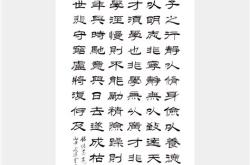 子之行靜以脩身儉以養德
以明志非寧靜無以致遠夫
才須學也非學無以廣才非
學淫慢則不能勵精險躁則
年與時馳意與日去遂成枯
世悲守窮廬將復何及